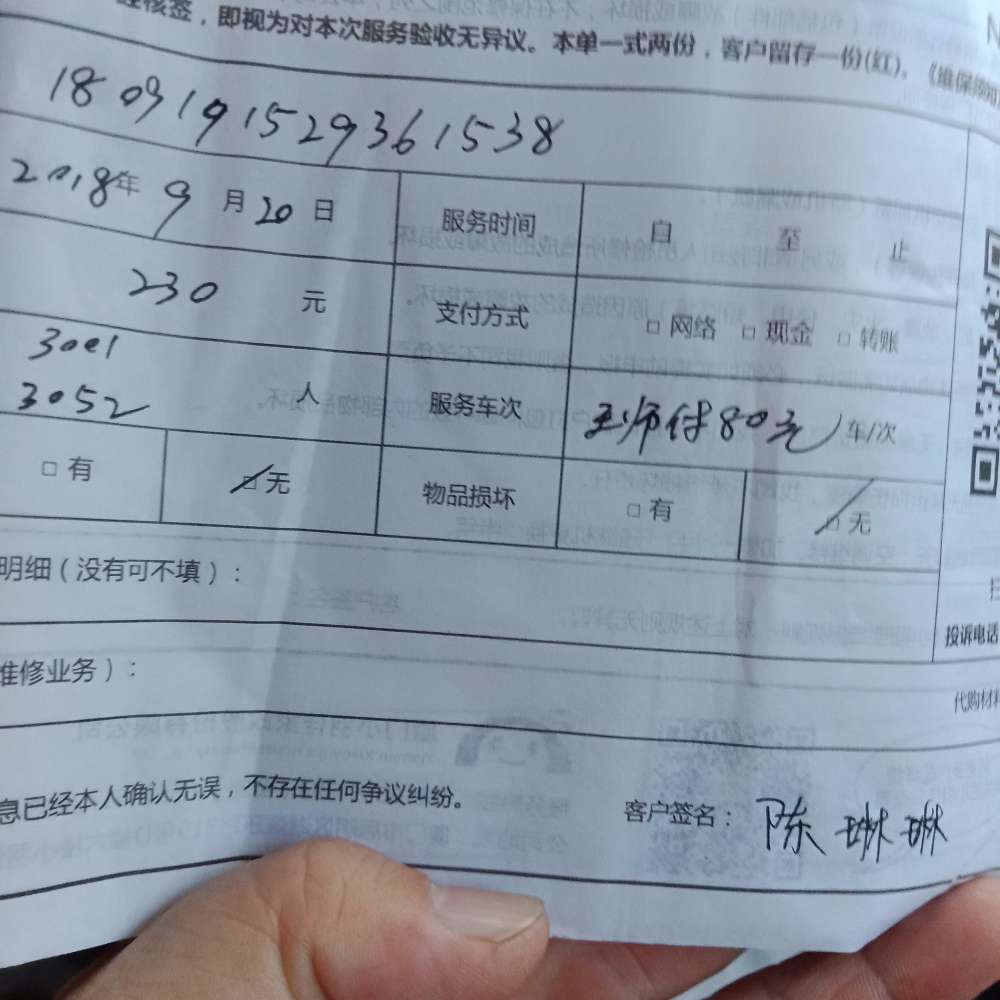 核签，即视为对本次服务验收无异议。本单一式两份，客户留存一份(红)。《维保须知
1809191529361538
2018年 9 月 20 日 服务时间 自 至 止
230 元 支付方式 □ 网络 □ 现金 □ 转账
3001
3052 人 服务车次 王师付80元 车/次
□ 有 □ 无 物品损坏 □ 有 □ 无
明细（没有可不填）：
投诉电话
维修业务）：
代购材料
息已经本人确认无误，不存在任何争议纠纷。 客户签名： 陈琳琳